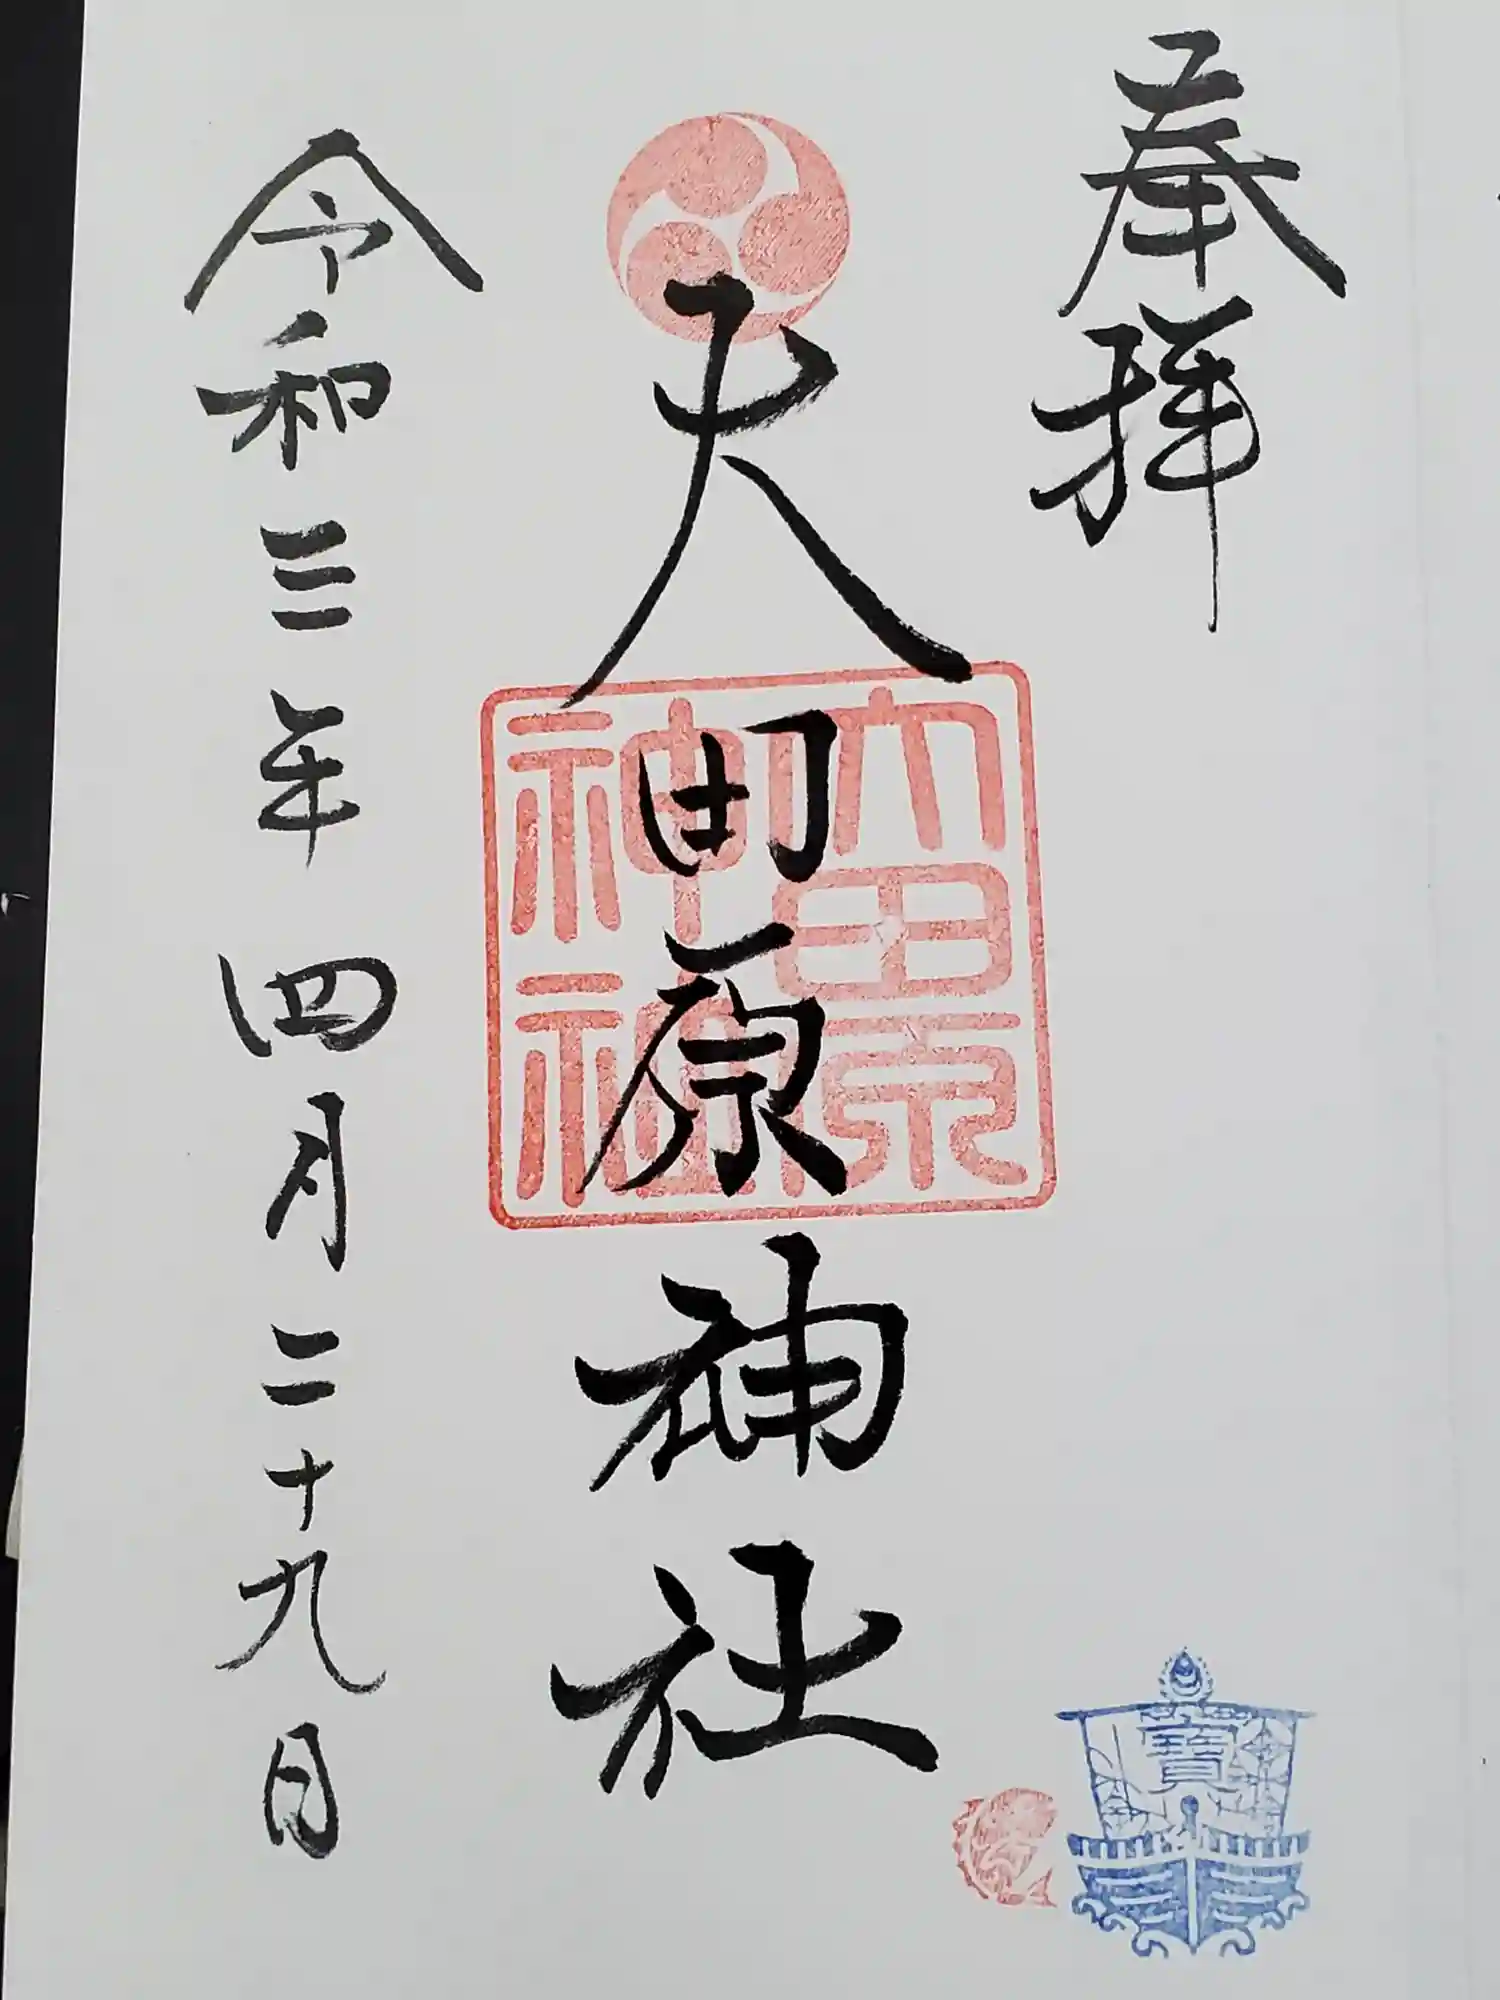 奉拝
大田原神社
大田原
神社
令和三年四月二十九日
寶